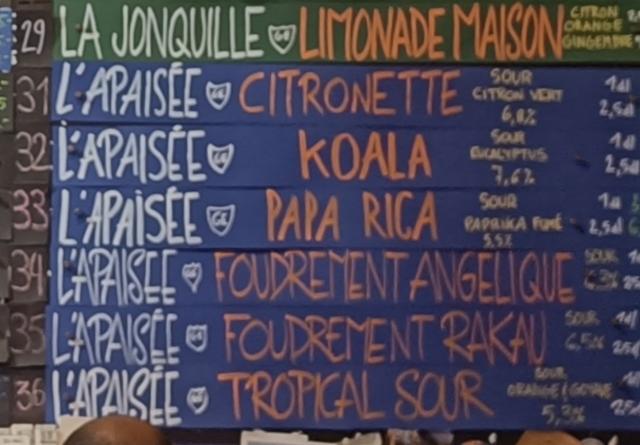 29 LA JONQUILLE GE LIMONADE MAISON CITRON ORANGE GINGEMBRE
31 L'APAISÉE GE CITRONETTE SOUR CITRON VERT 6,8% 1dl 2,5dl
32 L'APAISÉE GE KOALA SOUR EUCALYPTUS 7,6% 1dl 2,5dl
33 L'APAISÉE GE PAPA RICA SOUR PAPRIKA FUMÉ 5,5% 1dl 2,5dl
34 L'APAISÉE GE FOUDREMENT ANGELIQUE SOUR
35 L'APAISÉE GE FOUDREMENT RAKAU SOUR 6,5% 1dl
36 L'APAISÉE GE TROPICAL SOUR SOUR ORANGE GOYAVE 5,3%